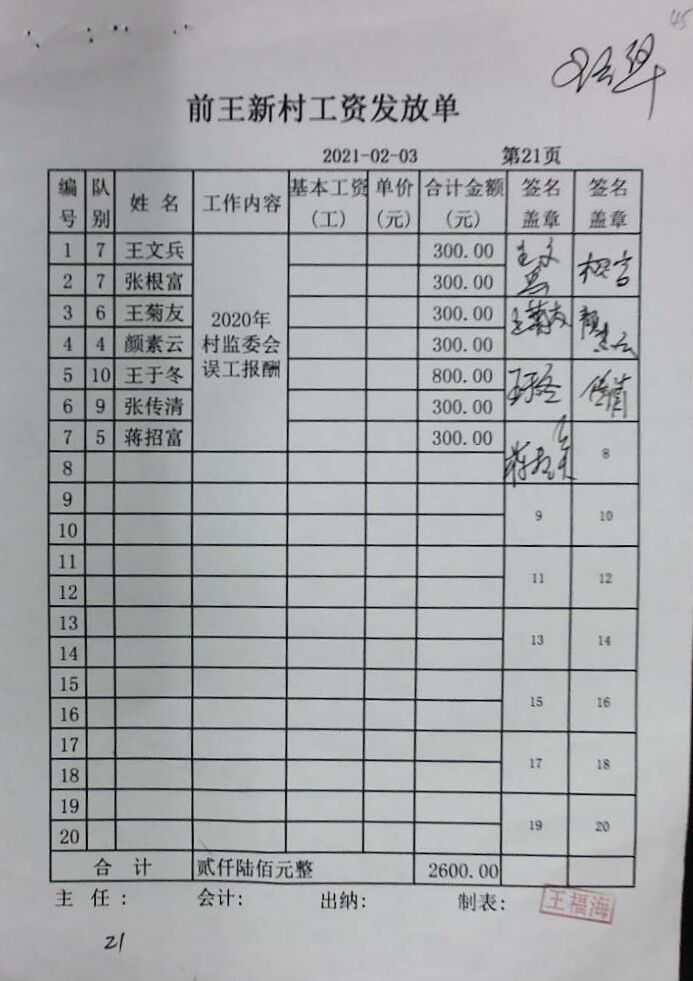 45
前王新村工资发放单
2021-02-03 第21页
编号 队别 姓 名 工作内容 基本工资(工) 单价(元) 合计金额(元) 签名盖章 签名盖章
1 7 王文兵 300.00
2 7 张根富 300.00
3 6 王菊友 300.00
4 4 颜素云 300.00
5 10 王于冬 800.00
6 9 张传清 300.00
7 5 蒋招富 300.00
2020年
村监委会
误工报酬
王文兵 根富
王菊友 颜素云
王于冬 传清
蒋招富 8
8
9
9 10
10
11
11 12
12
13
13 14
14
15
15 16
16
17
17 18
18
19
19 20
20
合 计 贰仟陆佰元整 2600.00
主 任: 会计: 出纳: 制表: 王福海
21